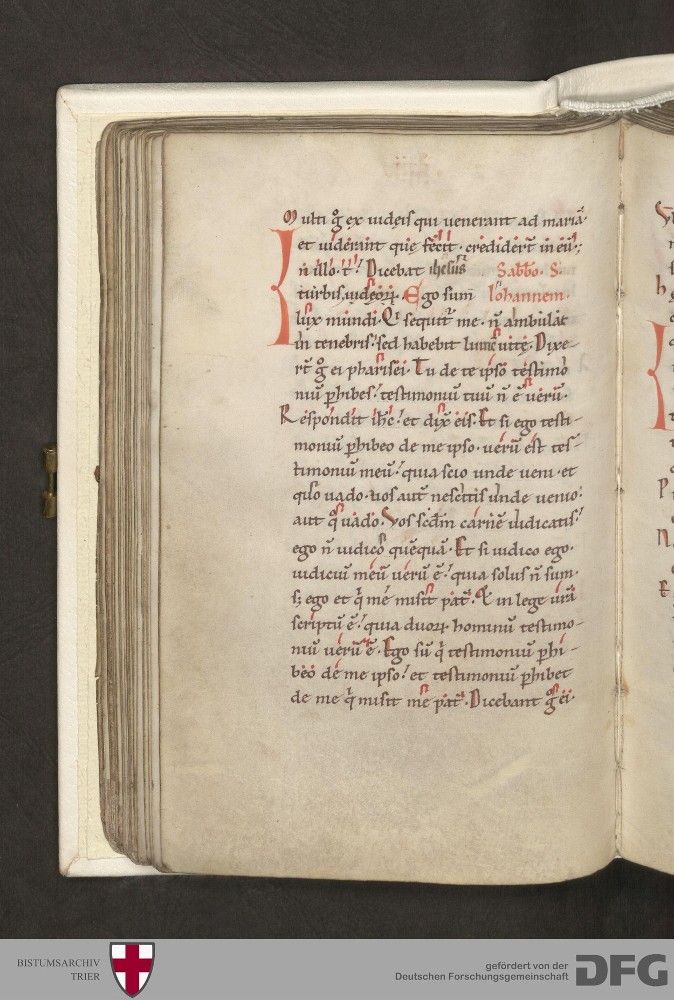 Multi g̊ ex iudęis qui uenerant ad mariā·
et uiderant quę fecit· crediderт̄ in eū·;
n̄ illo· t̄· Dicebat ihesus Sabbō· S·
turbis iudęoꝝ· Ego sum Iohannem·
lux mundi· Qi sequit̄ me· n̄ ambulat
in tenebris· sed habebit lumē uitę· Dixe-
rt̄ g̊ ei pharisei· Tu de te ipso testimo
niū ꝑhibes· testimoniū tuū n̄ ē uerū·
Respondit ih̄c· et dix̄ eis· Et si ego testi-
moniū ꝑhibeo de me ipso· uerū est tes-
timoniū meū· quia scio unde ueni· et
quo uado· uos aut̄ nescitis unde uenio·
aut q̊ uado· Vos sc̄dm carnē iudicatis·
ego n̄ iudico quēquā· Et si iudico ego·
iudiciū meū uerū ē· quia solus n̄ sum·
s; ego et q̇ me misit pat̄· Et in lege ur̄a
scriptū ē· quia duoꝝ· hominū testimo-
niū uerū ē· Ego sū q̇ testimoniū ꝑhi-
beo de me ipso· et testimoniū ꝑhibet
de me q̇ misit me pat̄· Dicebant g̊ ei·
BISTUMSARCHIV
TRIER
gefördert von der
Deutschen Forschungsgemeinschaft
DFG